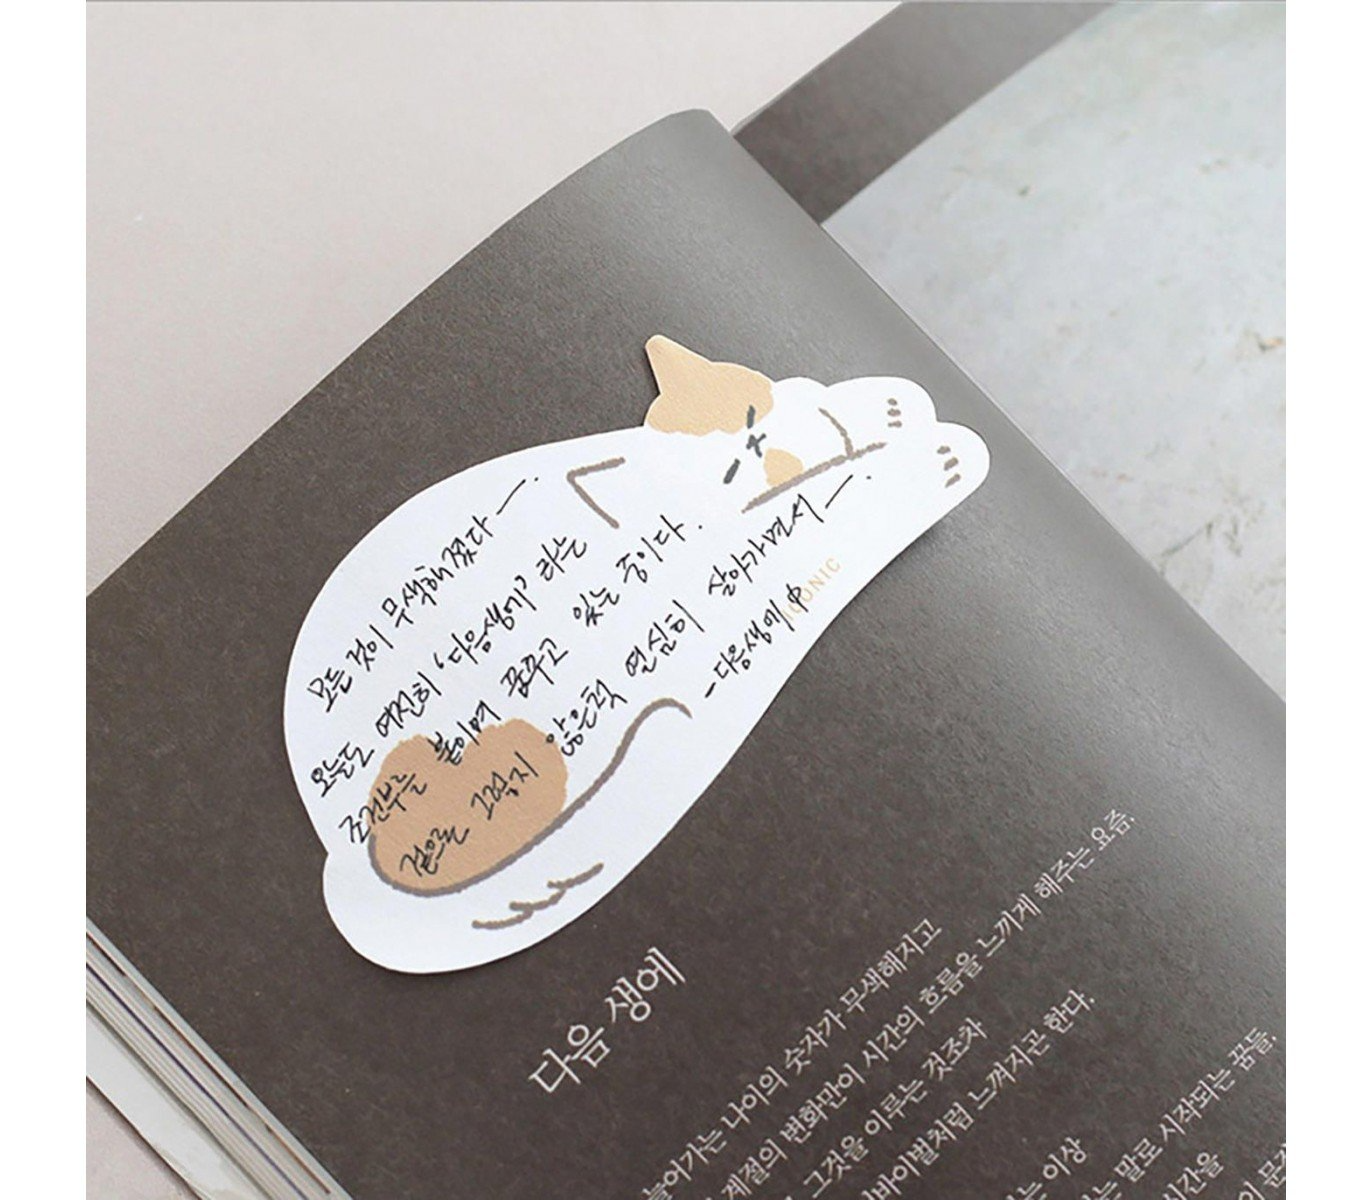 모든 것이 무색해졌다—.
오늘도 여전히 '다음생에' 라는
조건부를 붙이며 꿈꾸고 있는 중이다.
겉으론 그렇지 않은척 열심히 살아가며서—.
-다음생에 中
ICONIC
다음 생에
늘어가는 나이의 숫자가 무색해지고
계절의 변화만이 시간의 흐름을 느끼게 해주는 요즘,
그것을 이루는 것조차
바이벌처럼 느껴지곤 한다.
는 이상
는 말로 시작되는 꿈들,
시간을